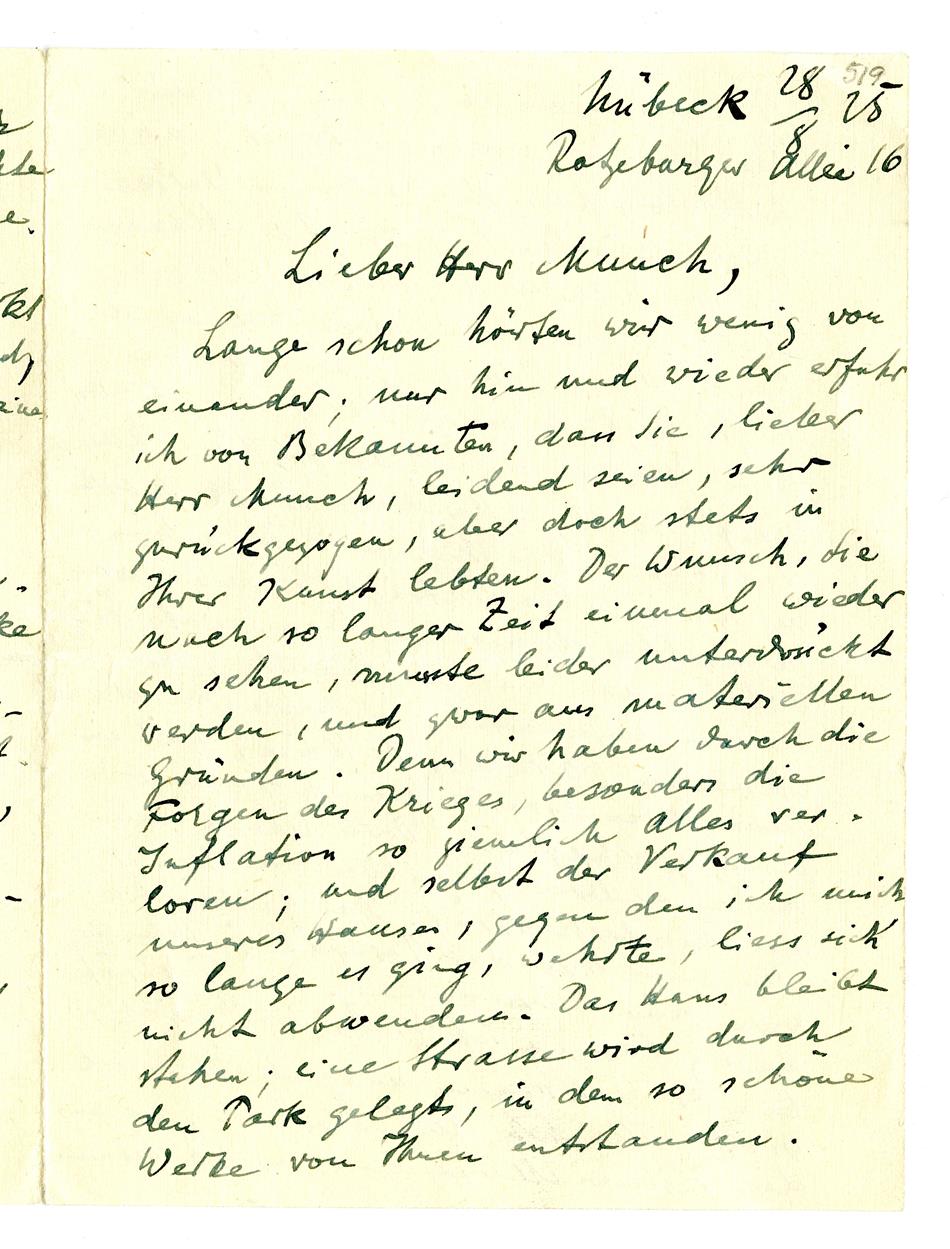 519
Lübeck 28/8 25
Ratzeburger Allee 16
Lieber Herr Munch,
Lange schon hörten wir wenig von
einander; nur hin und wieder erfuhr
ich von Bekannten, dass Sie, lieber
Herr Munch, leidend seien, sehr
zurückgezogen, aber doch stets in
Ihrer Kunst lebten. Der Wunsch, Sie
nach so langer Zeit einmal wieder
zu sehen, musste leider unterdrückt
werden, und zwar aus materiellen
Gründen. Denn wir haben durch die
Folgen des Krieges, besonders die
Inflation so ziemlich alles ver-
loren; und selbst der Verkauf
unseres Hauses, gegen den ich mich
so lange es ging, wehrte, liess sich
nicht abwenden. Das Haus bleibt
stehen; eine Strasse wird durch
den Park gelegt, in dem so schöne
Werke von Ihnen entstanden.